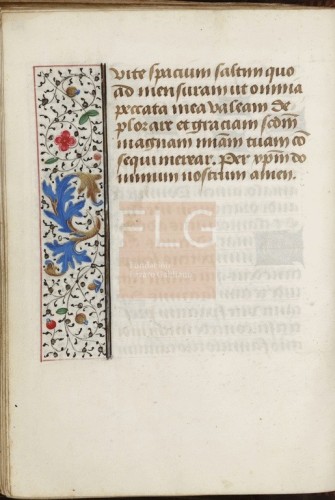 vite spacium saltim quo
ad mensuram ut omnia
peccata mea valeam de
plorare et graciam scdm
magnam miam tuam co
sequi merear. Per xpm do
minum nostrum amen.
FLG